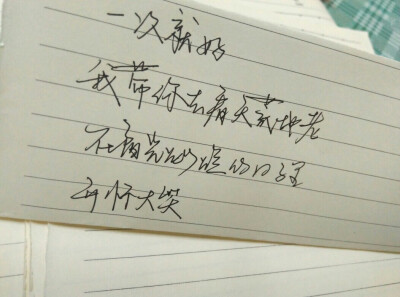 一次就好
我带你去看天荒地老
在阳光灿烂的日子里
开怀大笑